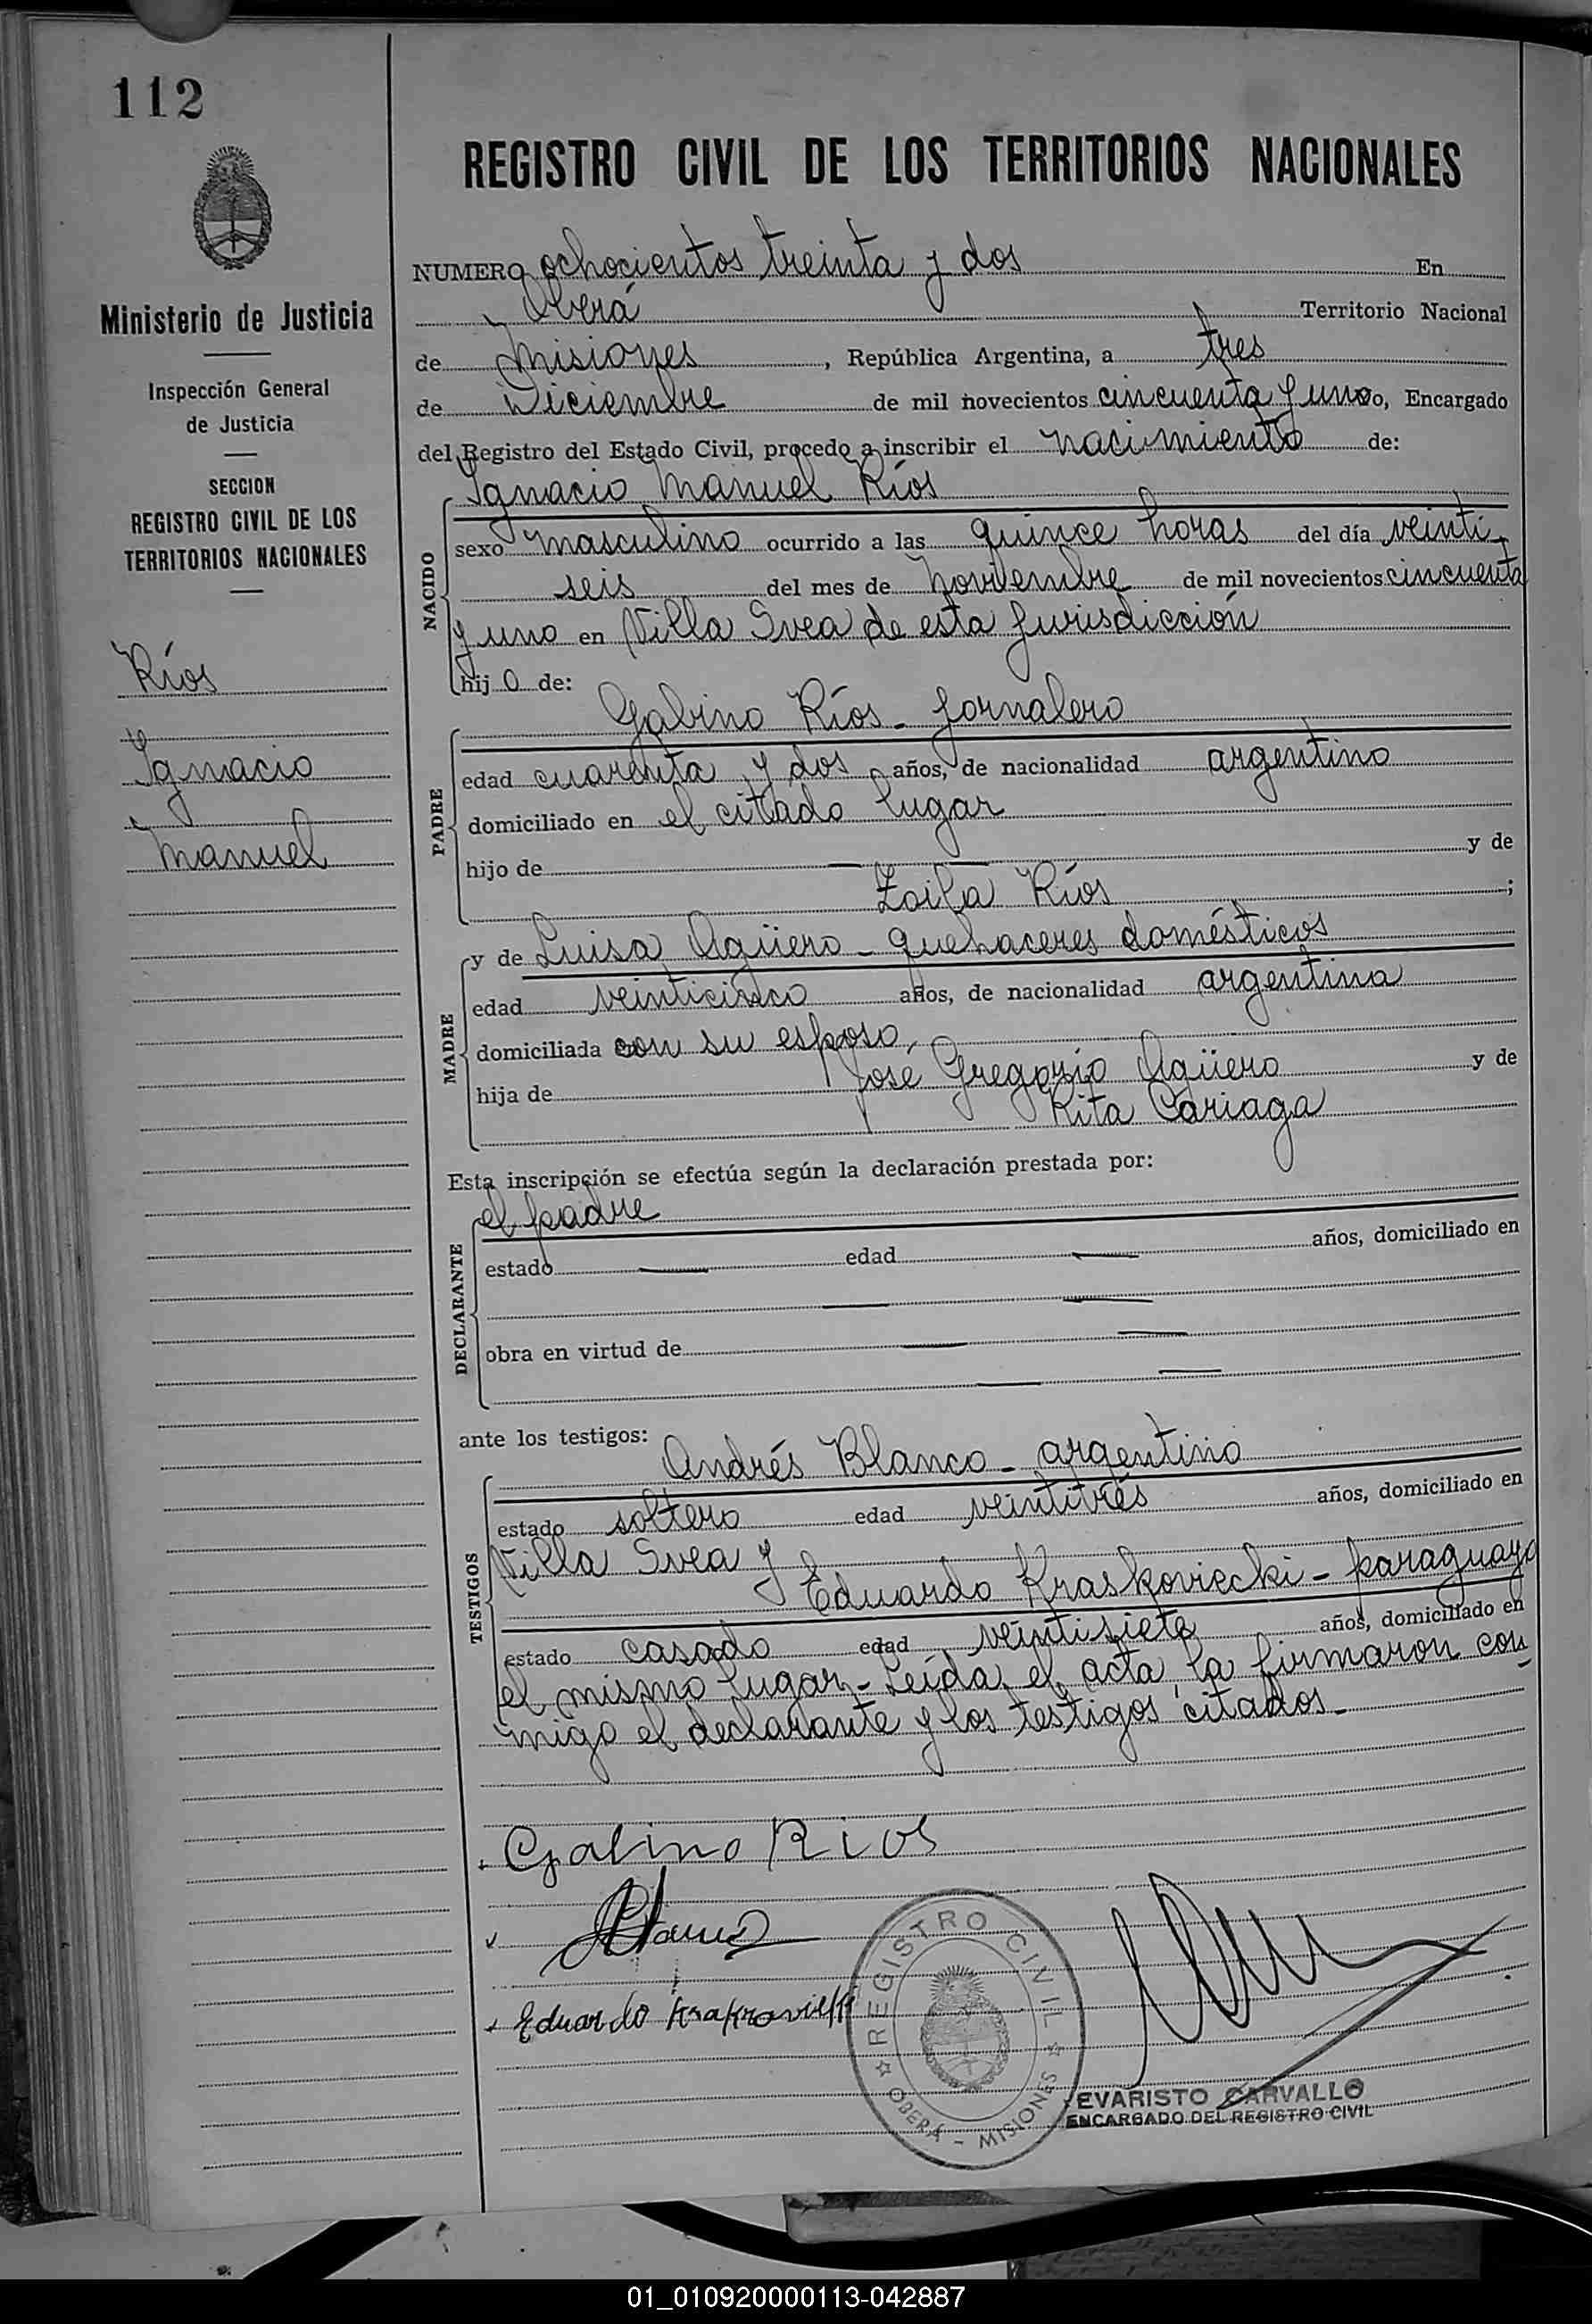 112
Ministerio de Justicia
Inspección General
de Justicia
SECCION
REGISTRO CIVIL DE LOS
TERRITORIOS NACIONALES
Ríos
Ignacio
Manuel
REGISTRO CIVIL DE LOS TERRITORIOS NACIONALES
NUMERO ochocientos treinta y dos En
Oberá Territorio Nacional
de Misiones, República Argentina, a tres
de Diciembre de mil novecientos cincuenta y uno, Encargado
del Registro del Estado Civil, procedo a inscribir el nacimiento de:
Ignacio Manuel Ríos
NACIDO
sexo masculino ocurrido a las quince horas del día veinti-
seis del mes de noviembre de mil novecientos cincuenta
y uno en Villa Svea de esta jurisdicción
hijo de:
PADRE
Gabino Ríos - jornalero
edad cuarenta y dos años, de nacionalidad argentino
domiciliado en el citado lugar
hijo de — — y de
Zoila Ríos ;
MADRE
y de Luisa Agüero - quehaceres domésticos
edad veinticinco años, de nacionalidad argentina
domiciliada con su esposo
hija de José Gregorio Agüero y de
Rita Cariaga
Esta inscripción se efectúa según la declaración prestada por:
DECLARANTE
el padre
estado — edad — años, domiciliado en
— —
obra en virtud de — —
— —
ante los testigos:
TESTIGOS
Andrés Blanco - argentino
estado soltero edad veintitrés años, domiciliado en
Villa Svea y
Eduardo Kraskoviecki - paraguayo
estado casado edad veintisiete años, domiciliado en
el mismo lugar - Leída el acta la firmaron con-
migo el declarante y los testigos citados.
Gabino Rios
Eduardo
REGISTRO CIVIL
OBERÁ - MISIONES
EVARISTO CARVALLO
ENCARGADO DEL REGISTRO CIVIL
01_010920000113-042887